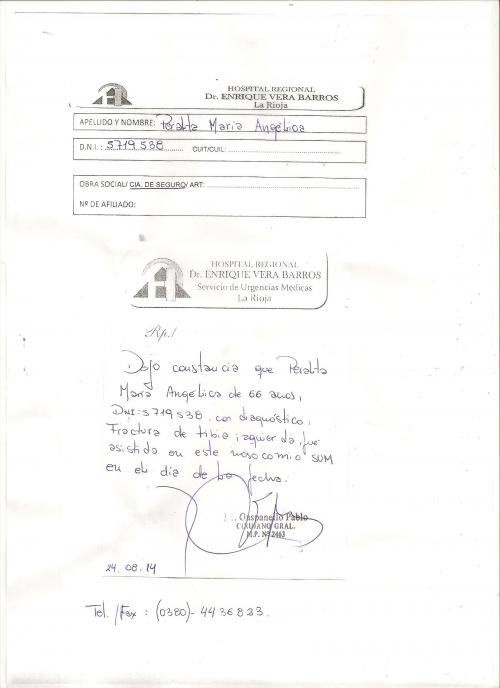 HOSPITAL REGIONAL
Dr. ENRIQUE VERA BARROS
La Rioja
APELLIDO Y NOMBRE: Peralta Maria Angelica
D.N.I.: 5719538 CUIT/CUIL:
OBRA SOCIAL/ CIA. DE SEGURO/ ART:
Nº DE AFILIADO:
HOSPITAL REGIONAL
Dr. ENRIQUE VERA BARROS
Servicio de Urgencias Medicas
La Rioja
Rp./
Dejo constancia que Peralta
Maria Angélica de 66 anos,
DNI: 5719538. con diagnóstico,
Fractura de tibia izquerda, fue
asistida en este nosocomio SUM
en el día de la fecha.
Pablo
CIRUJANO GRAL.
M.P. Nº 2463
24.08.14
Tel./Fax : (0380)- 4436823.